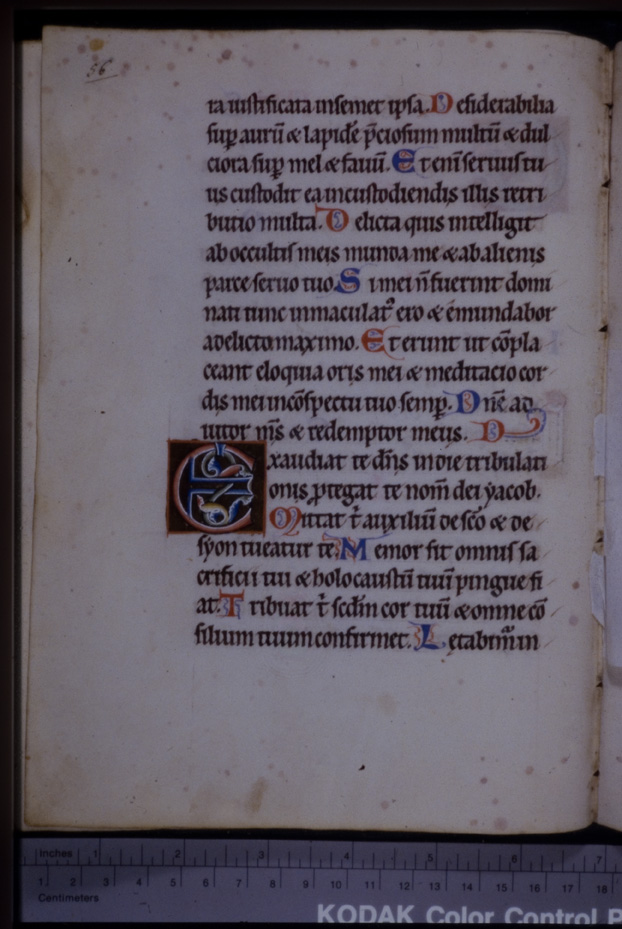 56
ra iustificata insemet ipsa. Desiderabilia
sup̲ aurū & lapidē p̄ciosum multū & dul
ciora sup̲ mel & fauū. Etenī seruus tu
us custodit ea incustodiendis illis retri
butio multa. Delicta quis intelligit
ab occultis meis munda me & abalienis
parce seruo tuo. Si mei n̄ fuerint domi
nati tunc inmaculatꝰ ero & emundabor
adelicto maximo. Et erunt ut cōpla
ceant eloquia oris mei & meditacio cor
dis mei incōspectu tuo semp̲. Dn̄e ad
iutor m̄s & redemptor meus. D
Exaudiat te dn̄s indie tribulati
onis ꝓtegat te nom̄ dei yacob.
Mittat t̄ auxiliū de scō & de
syon tueatur te. Memor sit omnis sa
crificii tui & holocaustū tuū pingue fi
at. Tribuat t̄ scdm̄ cor tuū & omne cō
silium tuum confirmet. Letabimur in
Inches 1 2 3 4 5 6 7
1 2 3 4 5 6 7 8 9 10 11 12 13 14 15 16 17 18
Centimeters
KODAK Color Control P